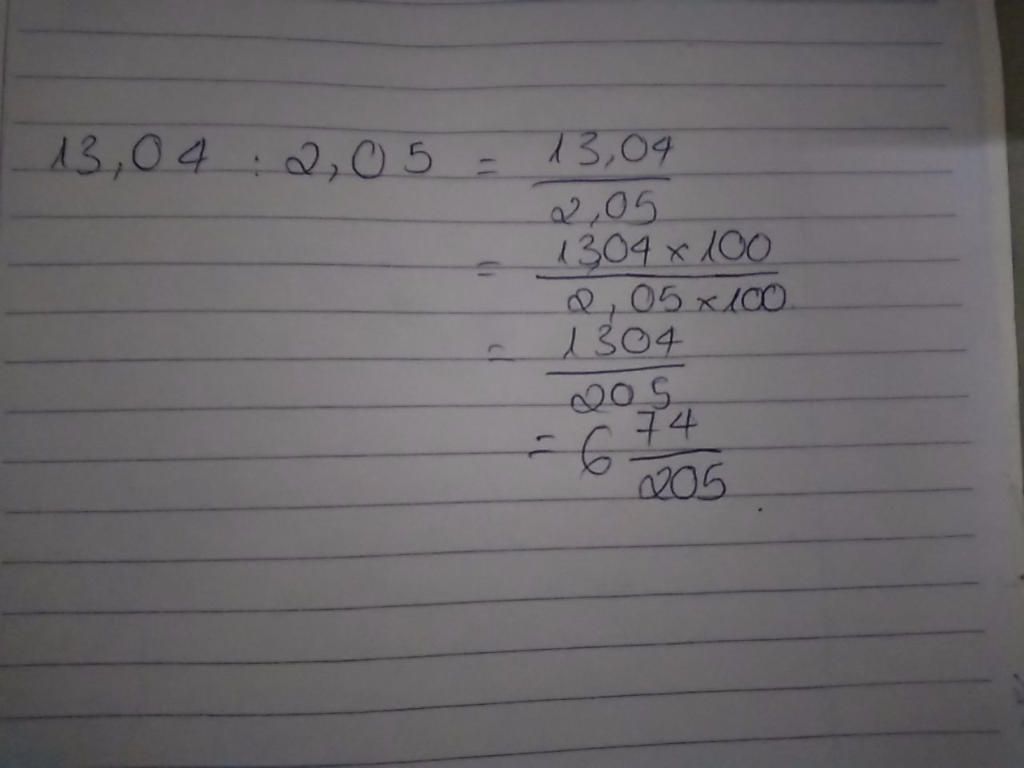 13,04 : 2,05 = 13,04/2,05
= 1304 x 100/2,05 x 100
= 1304/205
= 6 74/205